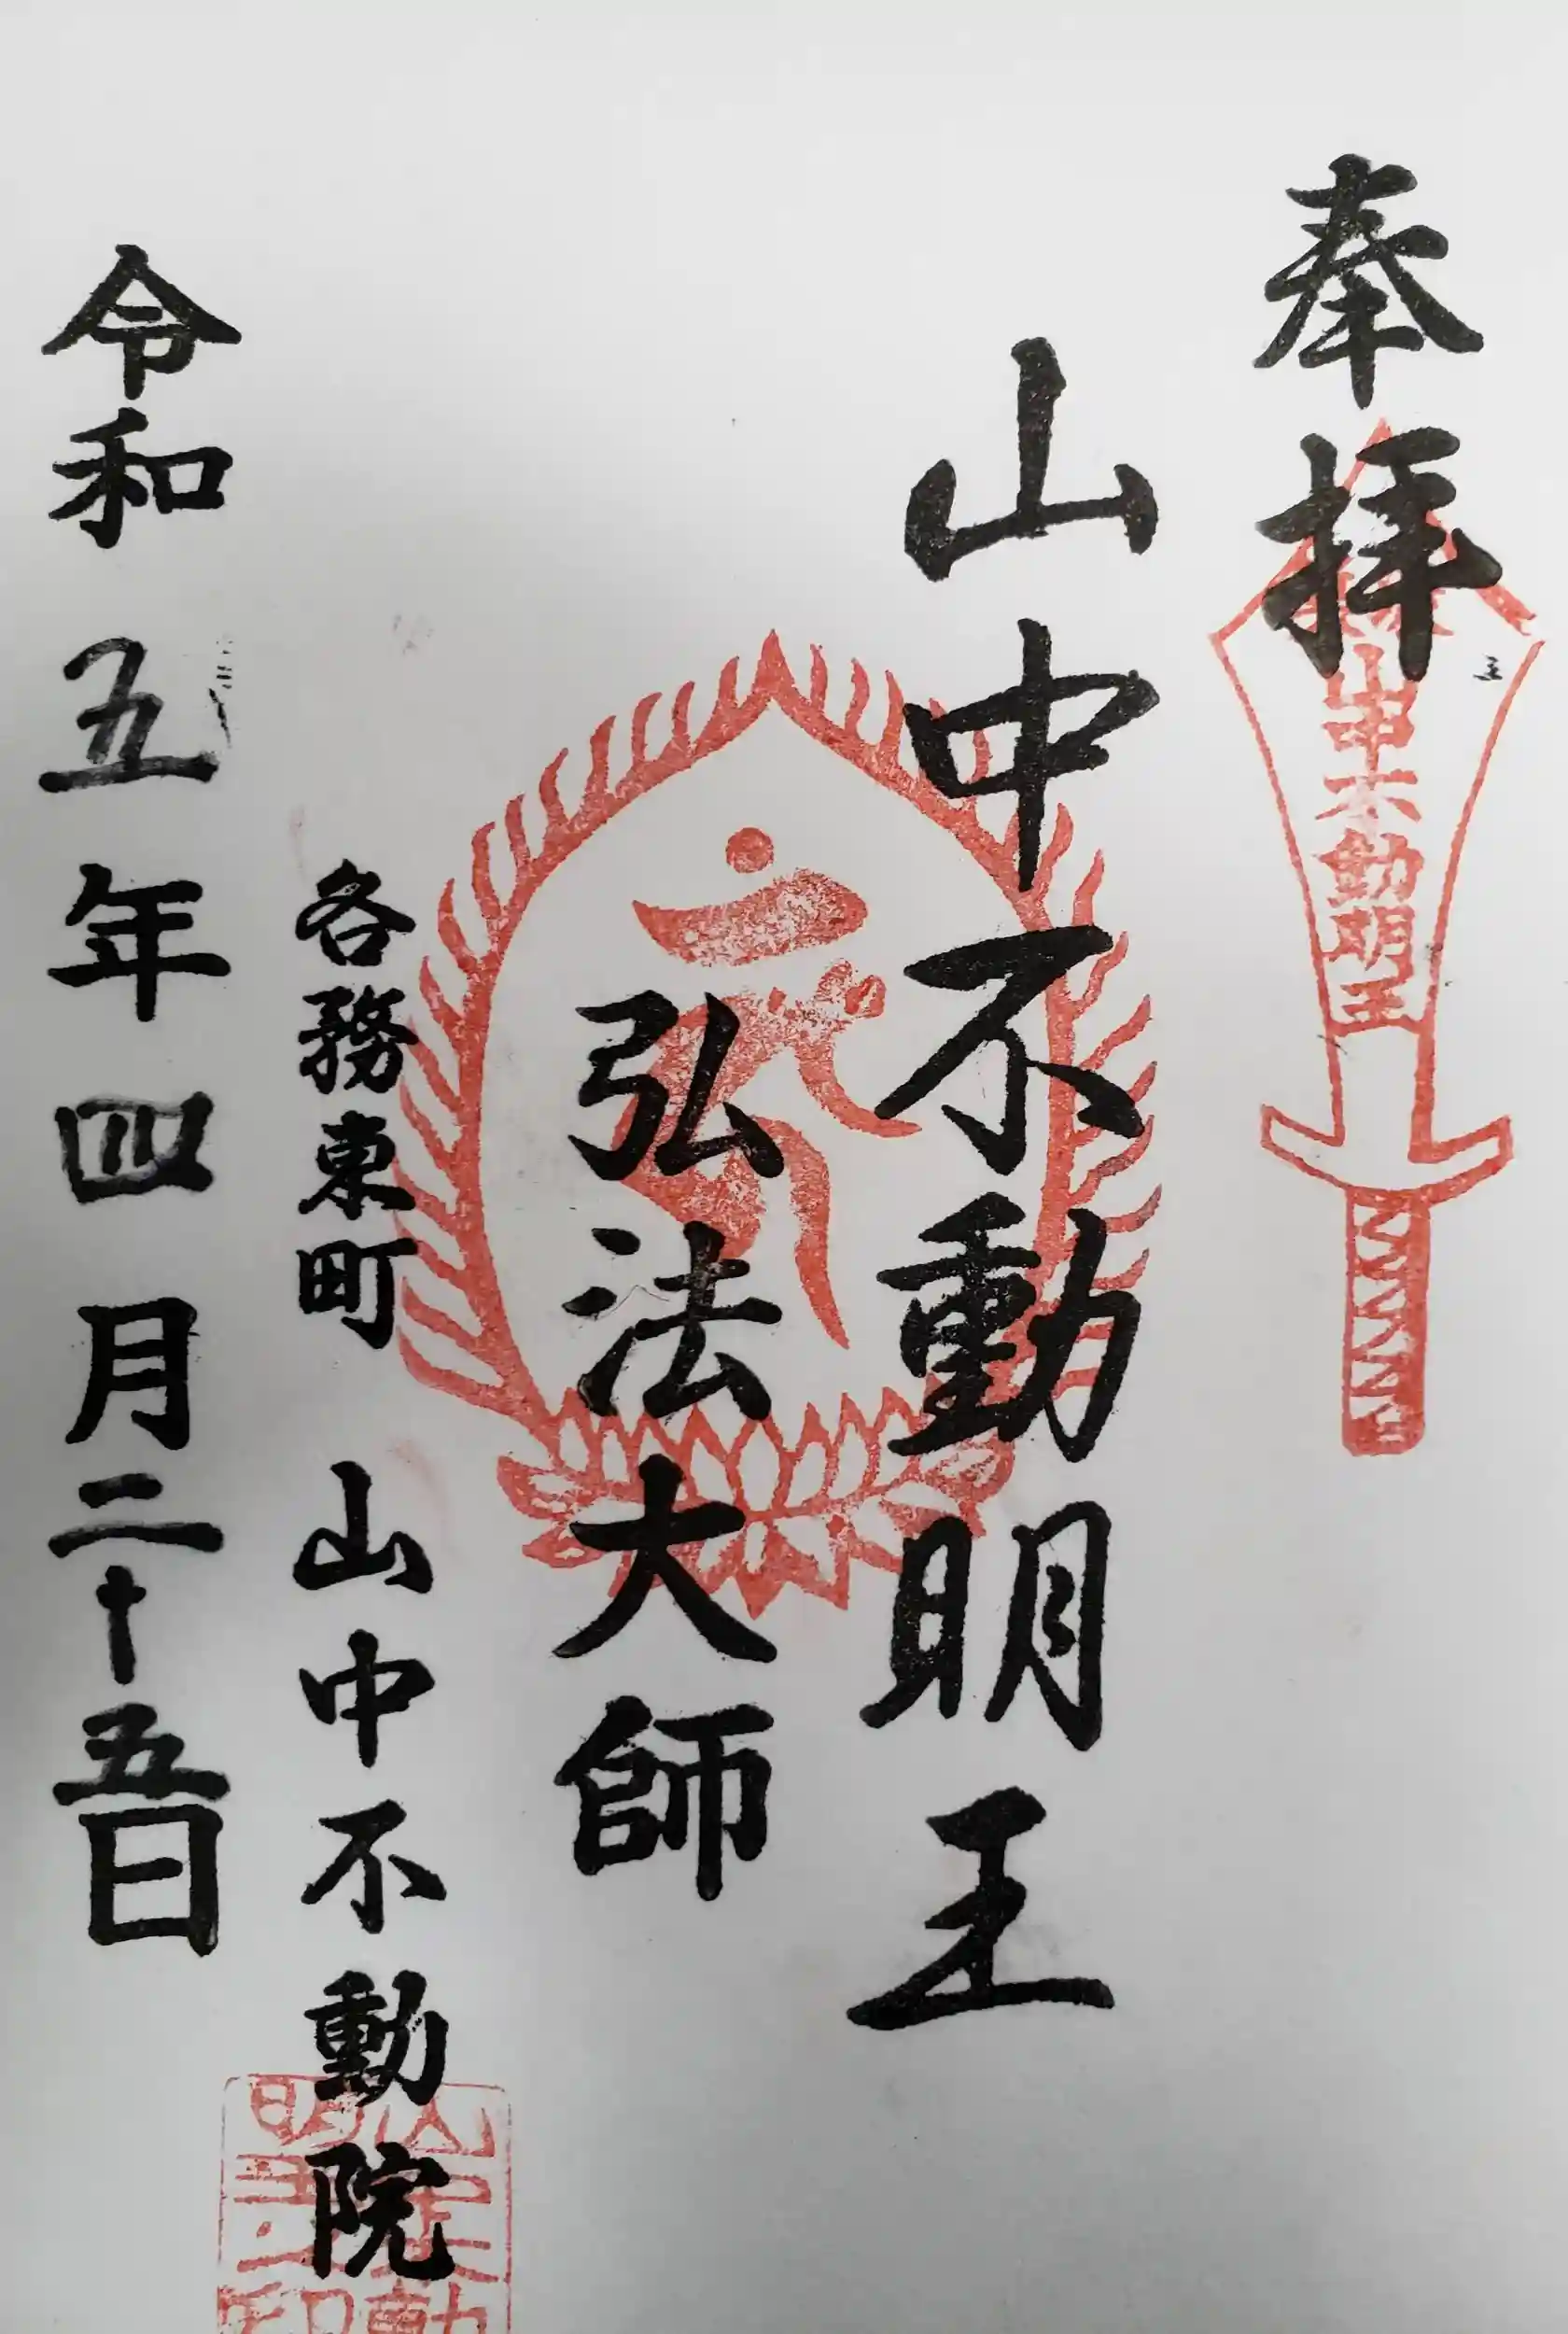 奉拝
山中不動明王
山中不動明王
弘法大師
各務東町 山中不動院
令和五年四月二十五日